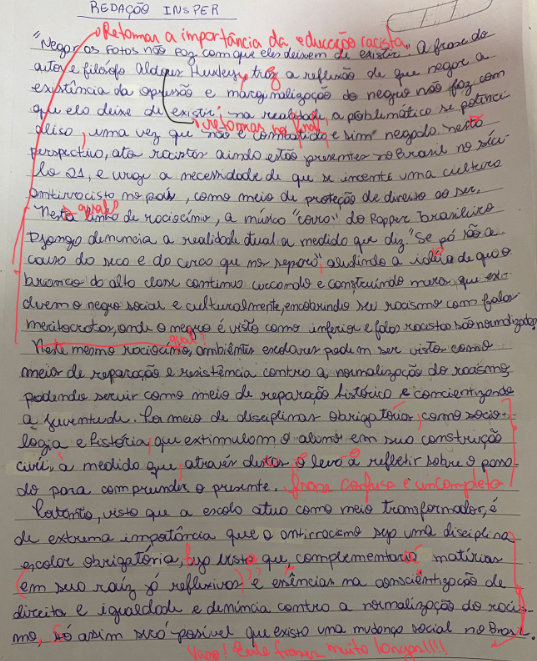 REDAÇÃO INSPER
Retomar a importância da educação racista
"Negar os fatos não faz com que eles deixem de existir". A frase do
autor e filósofo Aldous Huxley, traz a reflexão de que negar a
existência da opressão e marginalização do negro não faz com
que ela deixe de existir, na realidade, a problemática se potenci
aliza, uma vez que não é combatida e sim negada nesta
retomar no final
perspectiva, atos racistas ainda estão presentes no Brasil no sécu
lo 21, e urge a necessidade de que se incente uma cultura
antirracista no país, como meio de proteção de direito ao ser.
qual?
Nesta linha de raciocínio, a música "corra" do Rapper brasileiro
Djonga denuncia a realidade atual a medida que diz "Se pó são a
causa do seco e do cerco que nos separa", aludindo a idéia de que o
branco da alta classe continua cercando e construindo muros que ex
cluem o negro social e culturalmente, encobrindo seu racismo com falas
meritocratas, onde o negro é visto como inferior e falas racistas são normalizadas
qual?
Neste mesmo raciocínio, ambientes escolares podem ser vistos como
meio de reparação e resistência contra a normalização do racismo,
podendo servir como meio de reparação histórica e concientizando
a juventude. Por meio de disciplinas obrigatórias, como socio-
logia e história, que extimulam o aluno em sua construção
civil, a medida que, através destas o leva a refletir sobre o passa-
do para compreender o presente. frase confusa e incompleta
Portanto, visto que a escola atua como meio transformador, é
de extrema importância que o antirracismo seja uma disciplina
escolar obrigatória, que complementaria matérias
em sua raiz já reflexivas, e essências na conscientização de
direita e igualdade e denúncia contra a normalização do racis-
mo, só assim será possível que exista uma mudança social no Brasil.
Vago! Evite frases muito longas!!!!